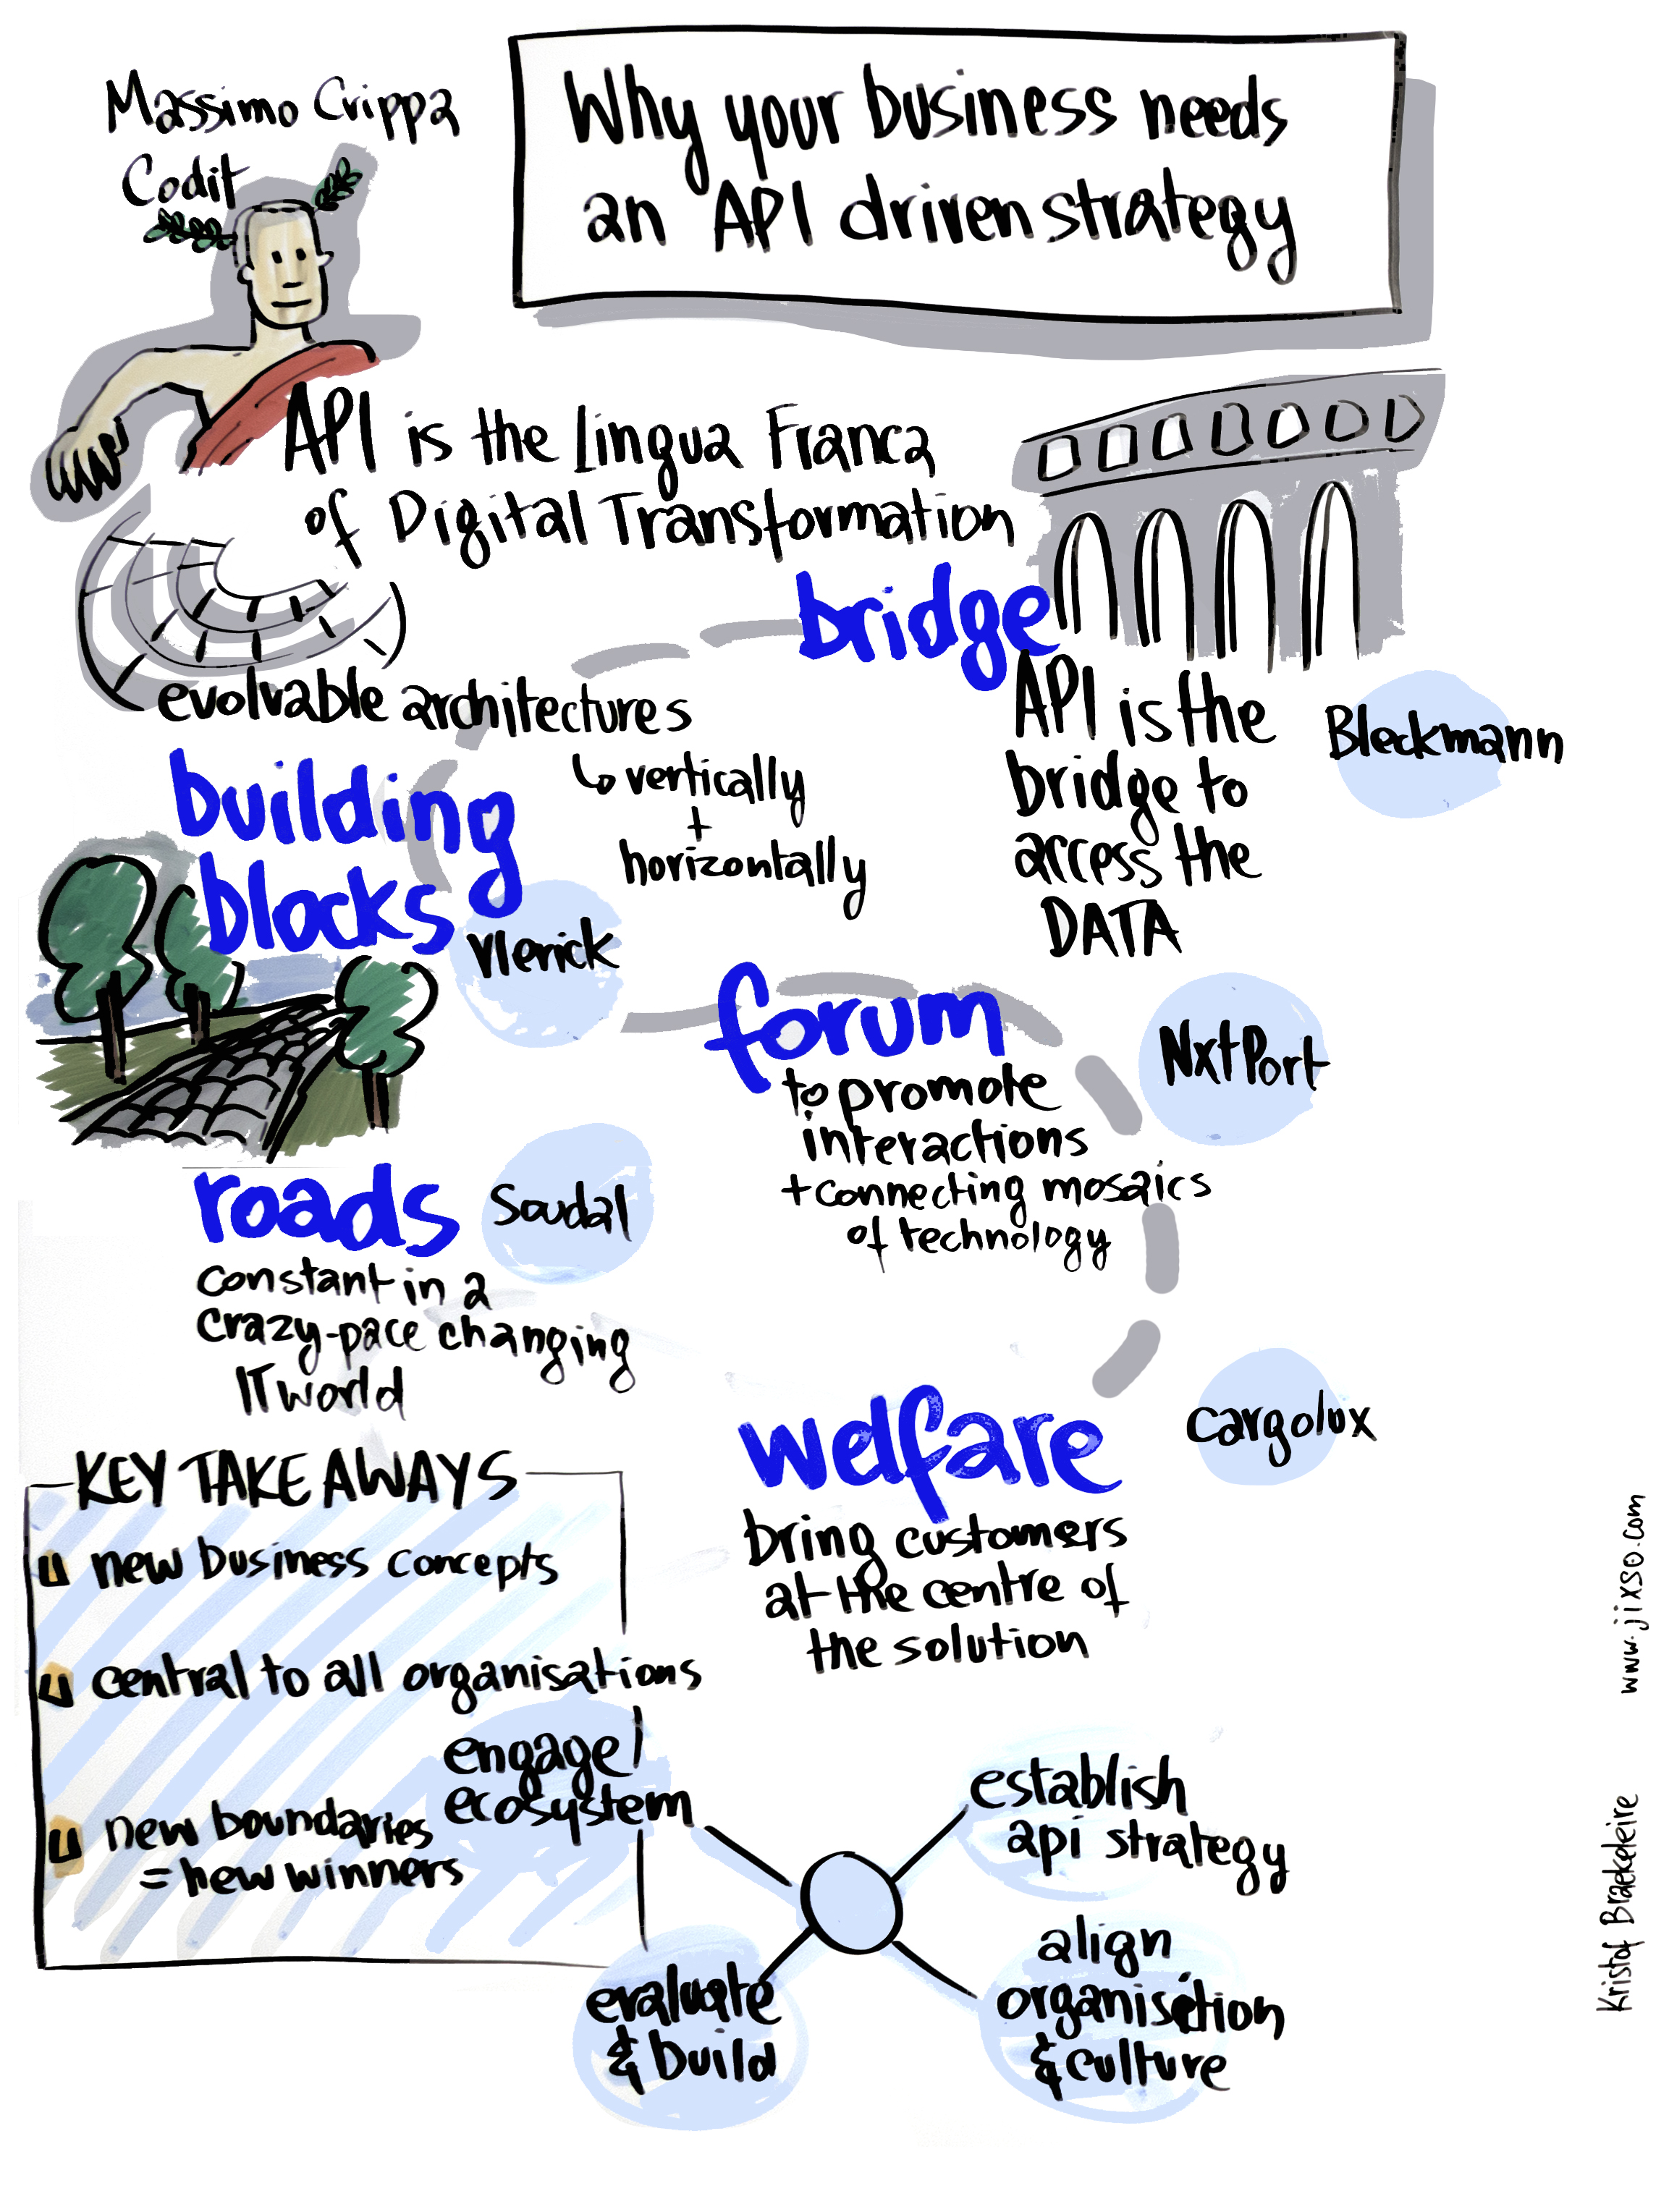 Massimo Crippa
Codit
Why your business needs
an API driven strategy
API is the Lingua Franca
of Digital Transformation
bridge
API is the
bridge to
access the
DATA
Bleckmann
evolvable architectures
↳ vertically
+
horizontally
building
blocks
Vlerick
forum
to promote
interactions
+ connecting mosaics
of technology
NxtPort
roads
Soudal
constant in a
crazy-pace changing
IT world
welfare
Cargolux
bring customers
at the centre of
the solution
KEY TAKE AWAYS
new business concepts
central to all organisations
new boundaries
= new winners
engage
ecosystem
establish
api strategy
evaluate
& build
align
organisation
& culture
Kristof Braekeleire
www.jixso.com